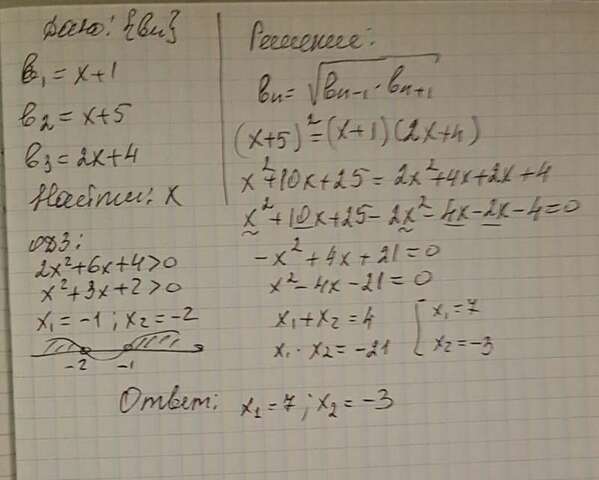 Дано: {bn}
b₁ = x+1
b₂ = x+5
b₃ = 2x+4
Найти: x
ОДЗ:
2x²+6x+4>0
x²+3x+2>0
x₁ = -1 ; x₂ = -2
-2 -1
Решение:
bn = √(bn-1 · bn+1)
(x+5)² = (x+1)(2x+4)
x²+10x+25 = 2x²+4x+2x+4
x²+10x+25-2x²-4x-2x-4=0
-x²+4x+21=0
x²-4x-21=0
x₁+x₂=4 [ x₁=7
x₁·x₂=-21 x₂=-3
Ответ: x₁=7 ; x₂=-3